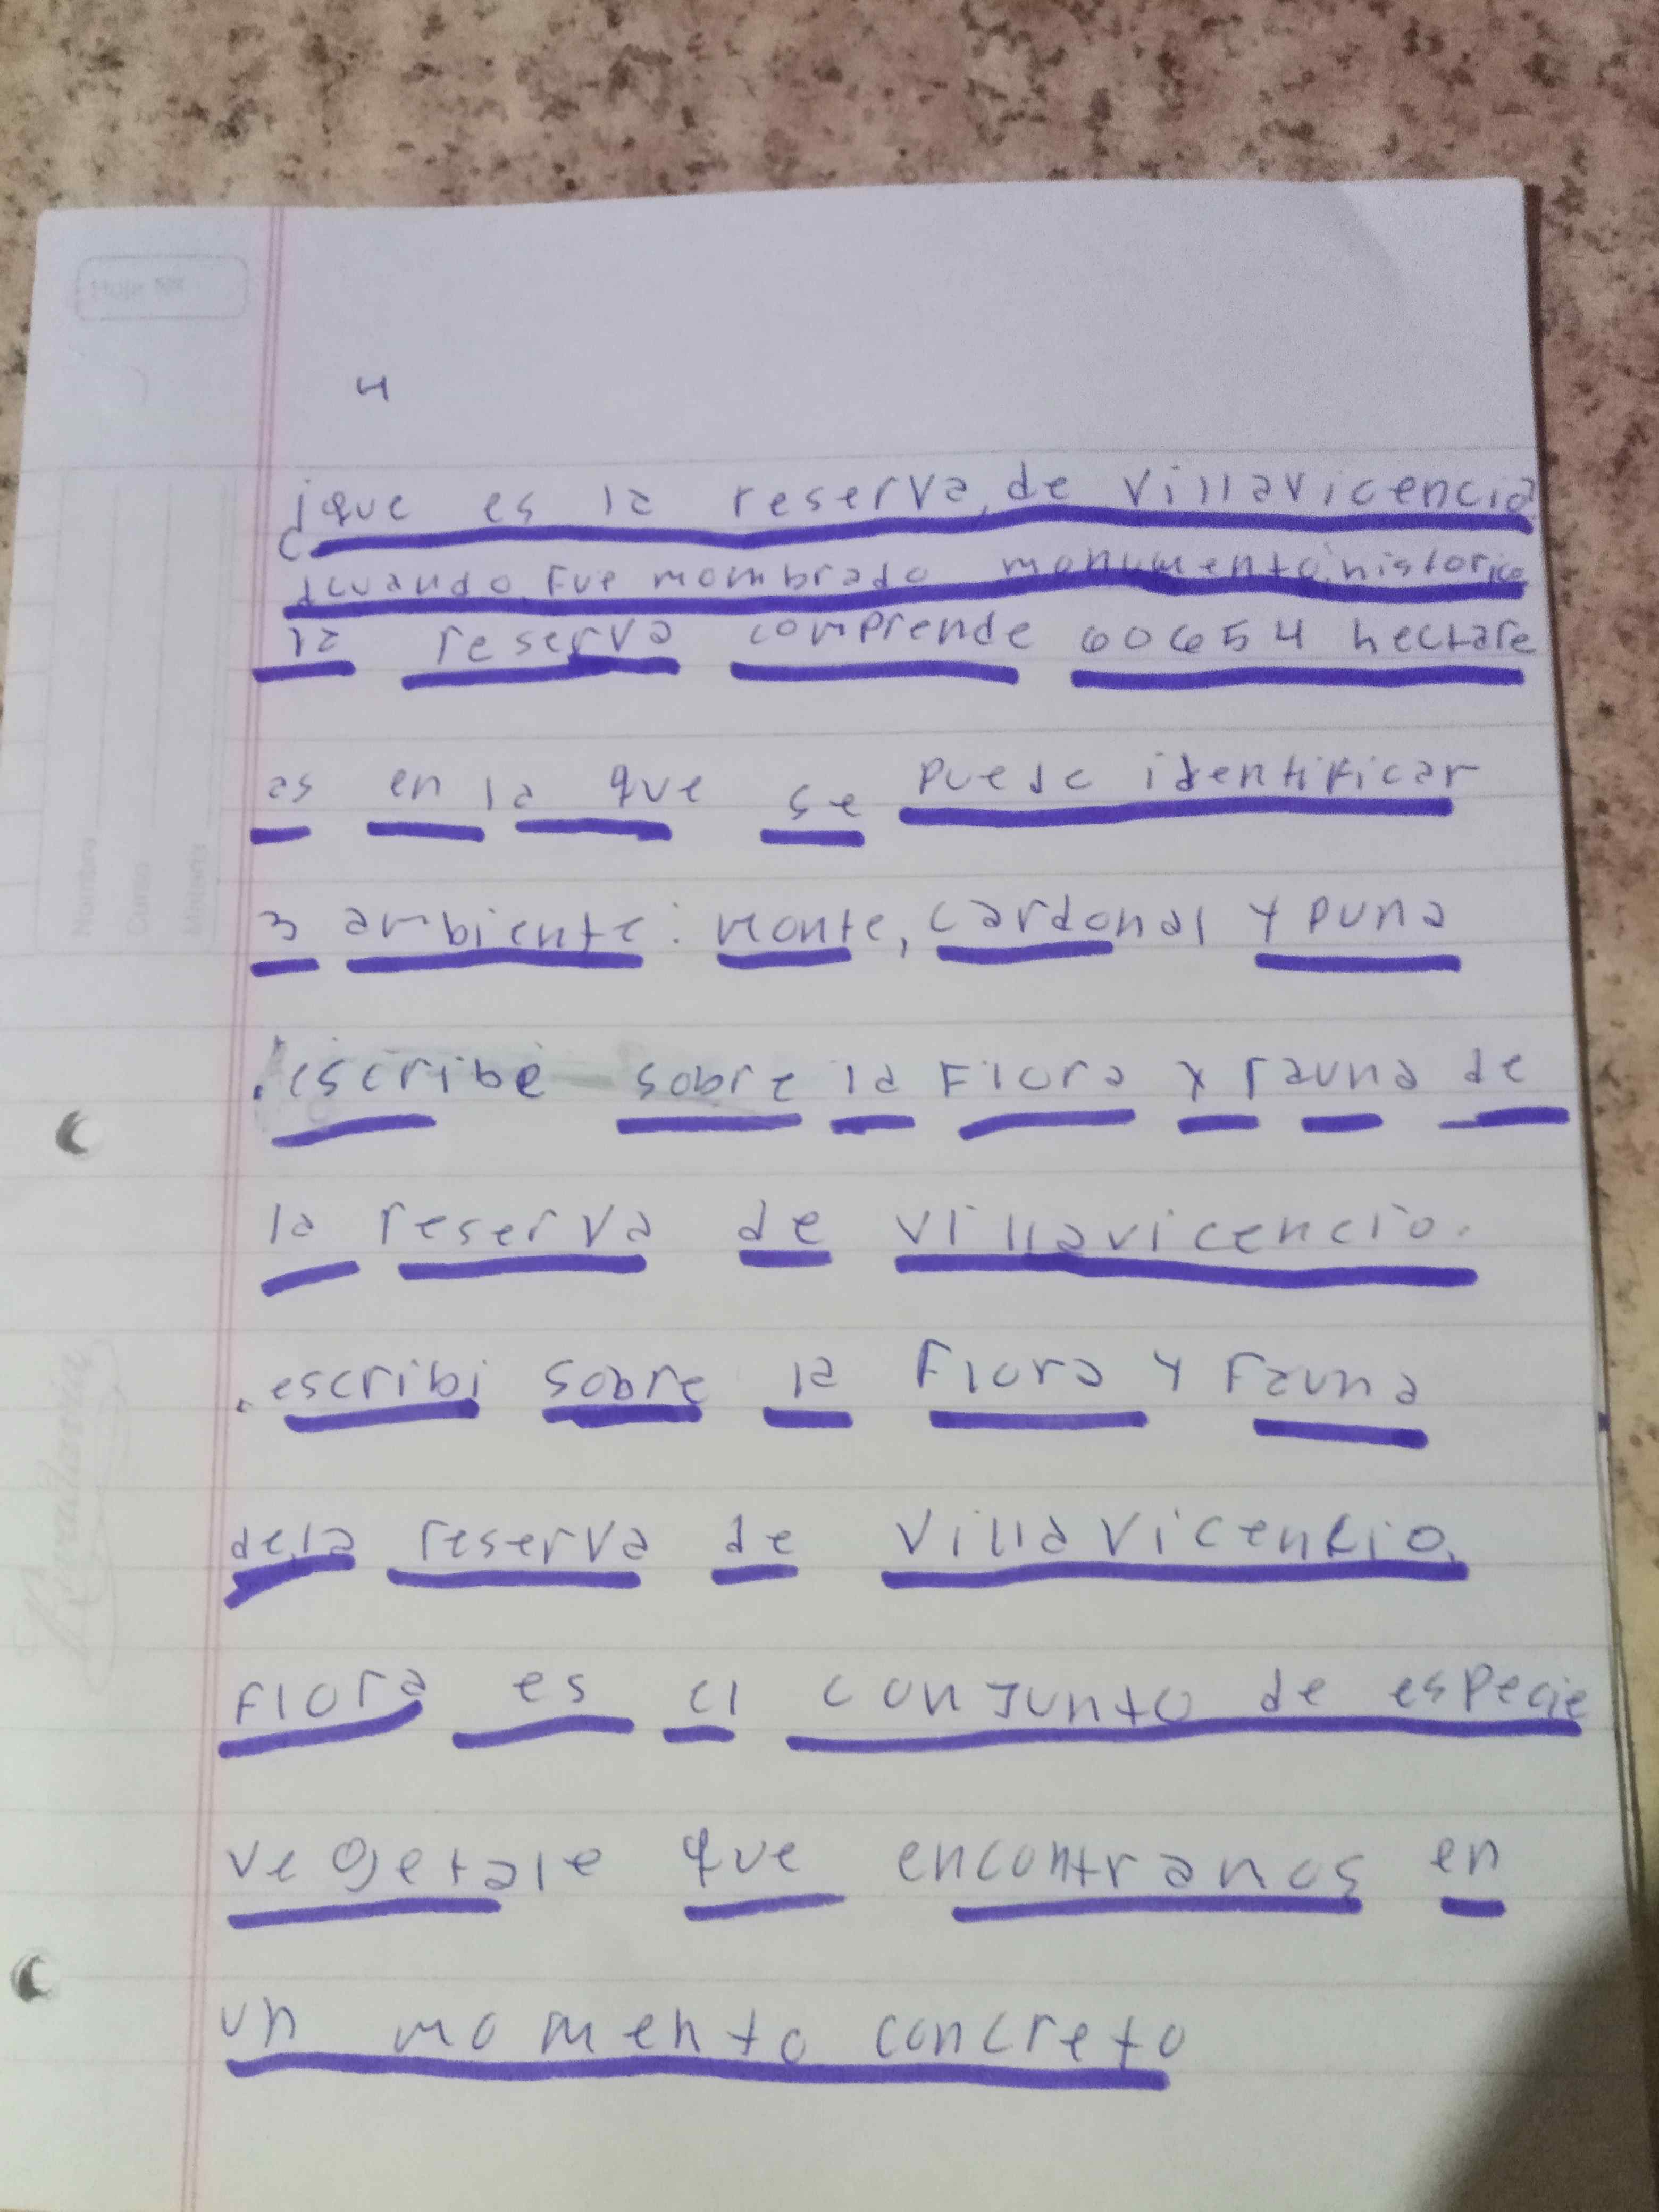 4
¿que es la reserva, de Villavicencio
¿cuando, fue mombrado monumento, historico
la reserva comprende 60654 hectare
as en la que se puede identificar
3 ambiente: Monte, cardonal y puna
.escribe sobre la Flora y Fauna de
la reserva de villavicencio.
.escribi sobre la Flora y Fauna
de,la reserva de Villavicencio.
Flora es el conjunto de especie
vegetale que encontramos en
un momento concreto
Hoja Nº
Nombre
Curso
Materia
Rivadavia